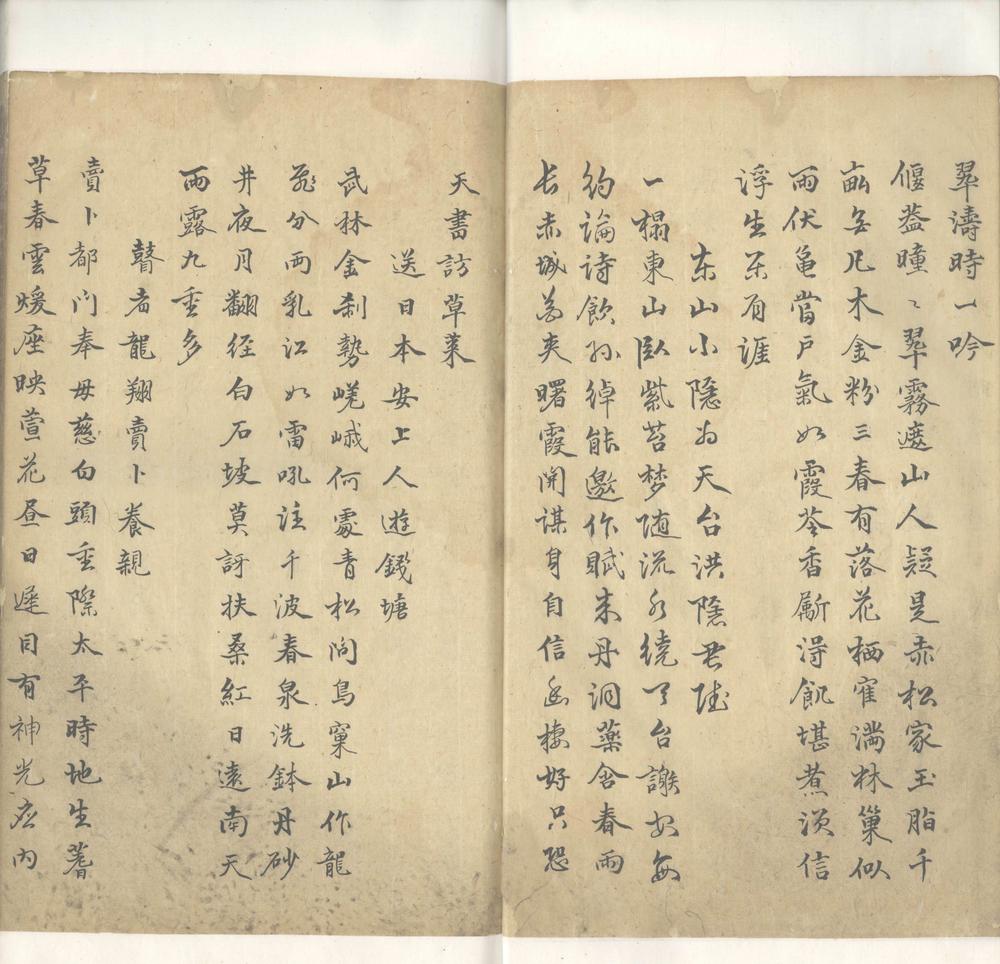 翠濤時一吟
偃葢曈〻翠霧遮山人疑是赤松家玉脂千
畝無凡木金粉三春有落花栖寉满林巢似
雨伏龜當戸氣如霞苓香斸淂飢堪煮湏信
浮生不有涯
東山小隱為天台洪隱君陸
一榻東山臥紫苔梦随流水繞天台謝安每
約論詩飲孫綽能邀作賦来丹洞藥舍春雨
长赤城花夾曙霞開謀身自信幽棲好只恐
天書訪草莱
送日本安上人遊錢塘
武林金刹勢嵯峨何處青松問鳥窠山作龍
飛分兩乳江如雷吼注千波春泉洗鉢丹砂
井夜月翻経白石坡莫訝扶桑紅日遠南天
雨露九重多
瞽者龍翔賣卜養親
賣卜都门奉母慈白頭重際太平時地生蓍
草春雲煖座映萱花昼日遲目有神光应内